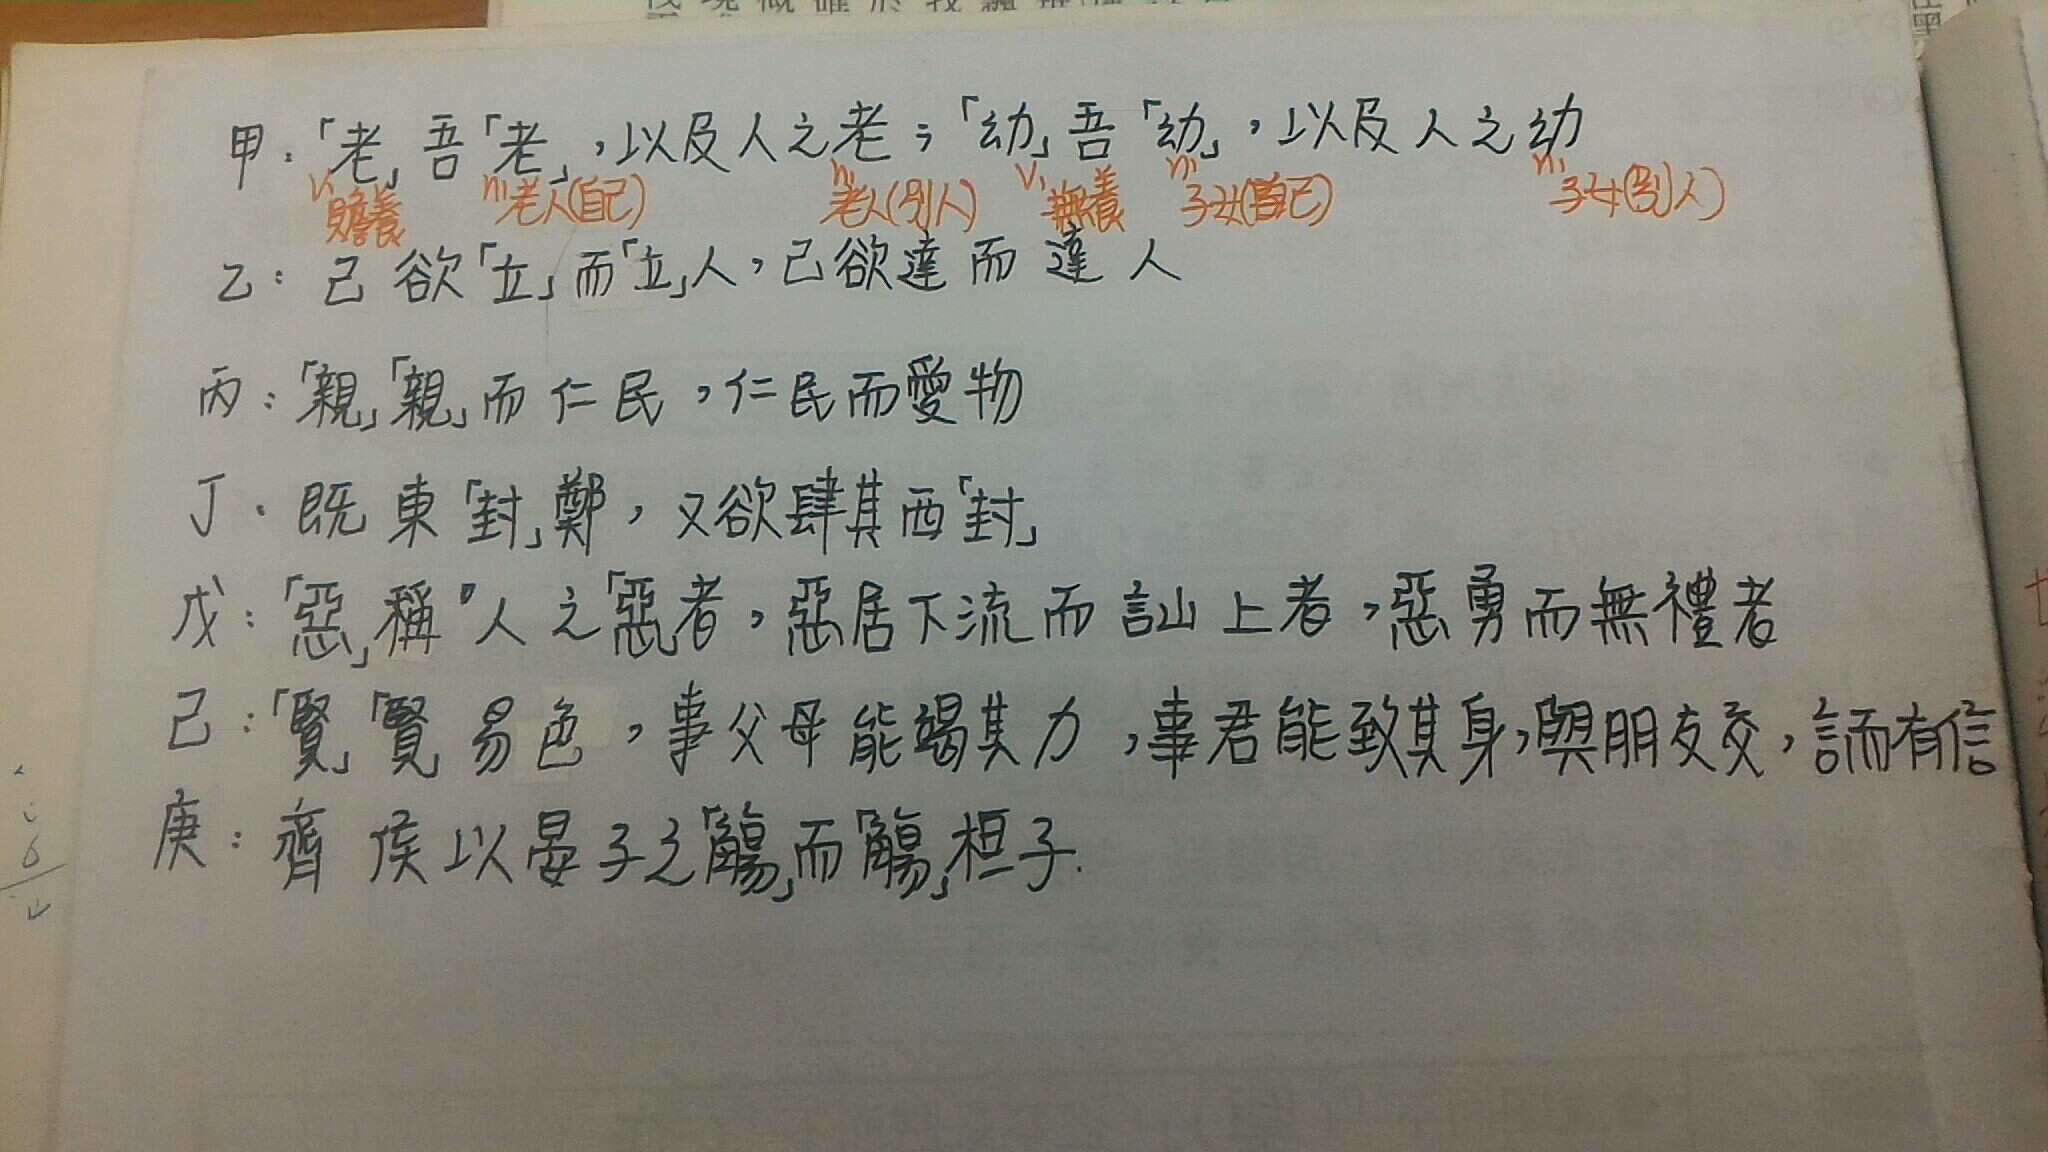 甲:「老」吾「老」,以及人之老;「幼」吾「幼」,以及人之幼
v. 贍養 n. 老人(自己) n. 老人(別人) v. 撫養 n. 子女(自己) n. 子女(別人)
乙:己欲「立」而「立」人,己欲達而達人
丙:「親」「親」而仁民,仁民而愛物
丁:既東「封」鄭,又欲肆其西「封」
戊:「惡」稱人之「惡」者,惡居下流而訕上者,惡勇而無禮者
己:「賢」「賢」易色,事父母能竭其力,事君能致其身,與朋友交,言而有信
庚:齊侯以晏子之「觴」而「觴」桓子.